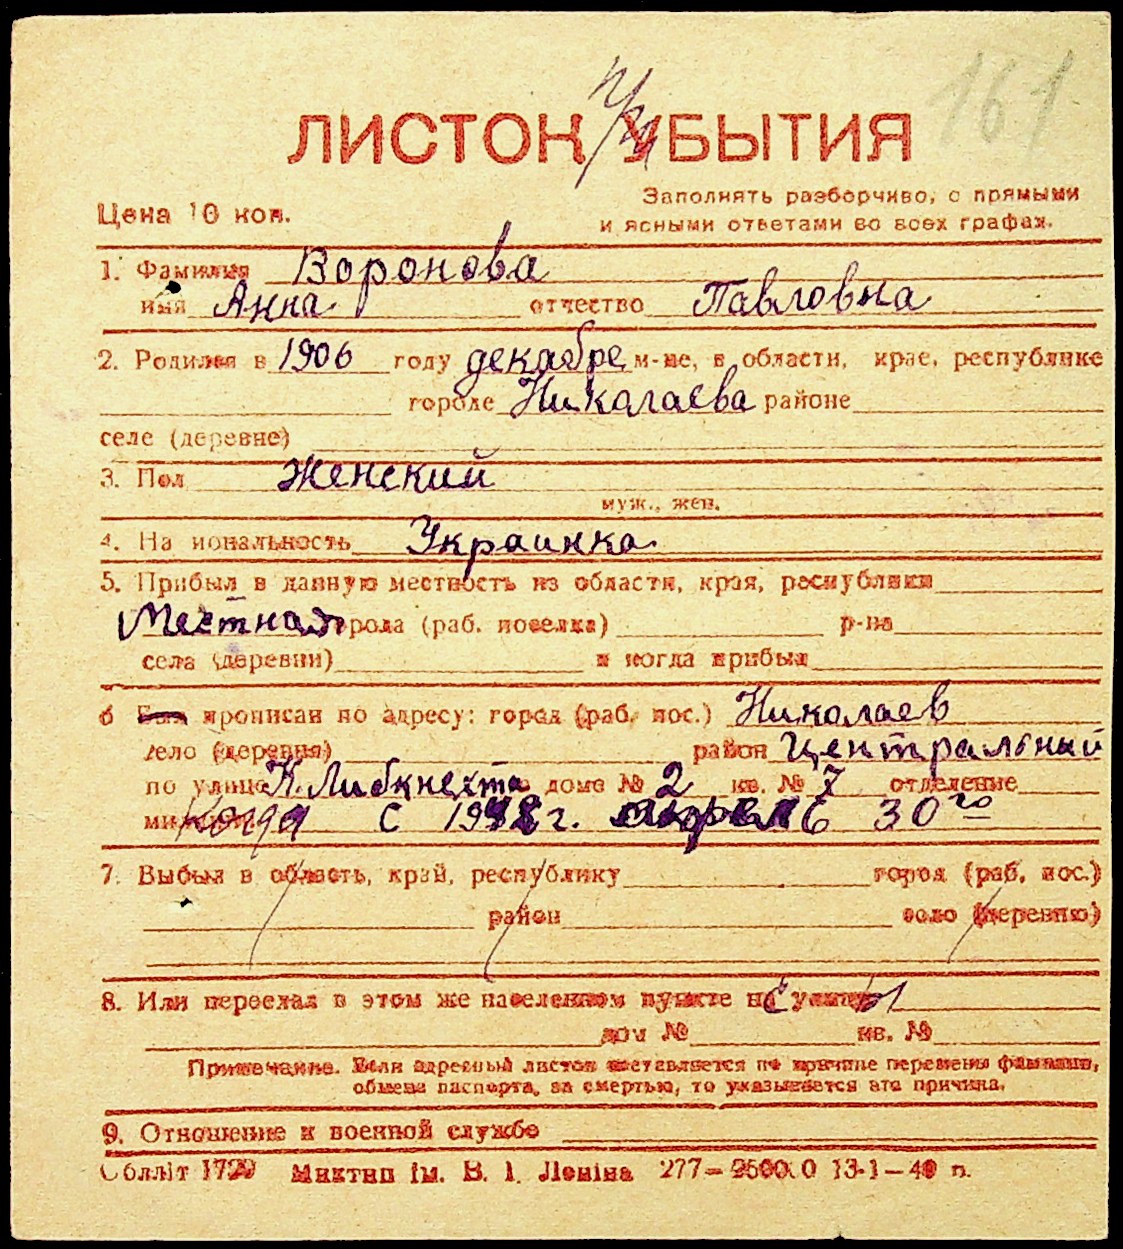 161
ЛИСТОК УБЫТИЯ
Цена 10 коп.
Заполнять разборчиво, с прямыми
и ясными ответами во всех графах.
1. Фамилия Воронова
имя Анна отчество Павловна
2. Родился в 1906 году декабре м-це, в области, крае, республике
городе Николаева районе
селе (деревне)
3. Пол Женский
муж., жен.
4. На иональность Украинка
5. Прибыл в данную местность из области, края, республики
Местная города (раб. поселка) р-на
села (деревни) и когда прибыл
6 Был прописан по адресу: город (раб. пос.) Николаев
село (деревня) район Центральный
по улице К. Либкнехта доме № 2 кв. № 7 отделение
Когда с г. 30го
7. Выбыл в область, край, республику город (раб. пос.)
район село (деревню)
8. Или переехал в этом же населенном пункте на с улицы
дом № кв. №
Примечание. Если адресный листок составляется по причине перемены фамилии,
обмена паспорта, за смертью, то указывается эта причина.
9. Отношение к военной службе
Обллiт Миктип iм. В. I. Ленiна 277— 13-1—40 п.